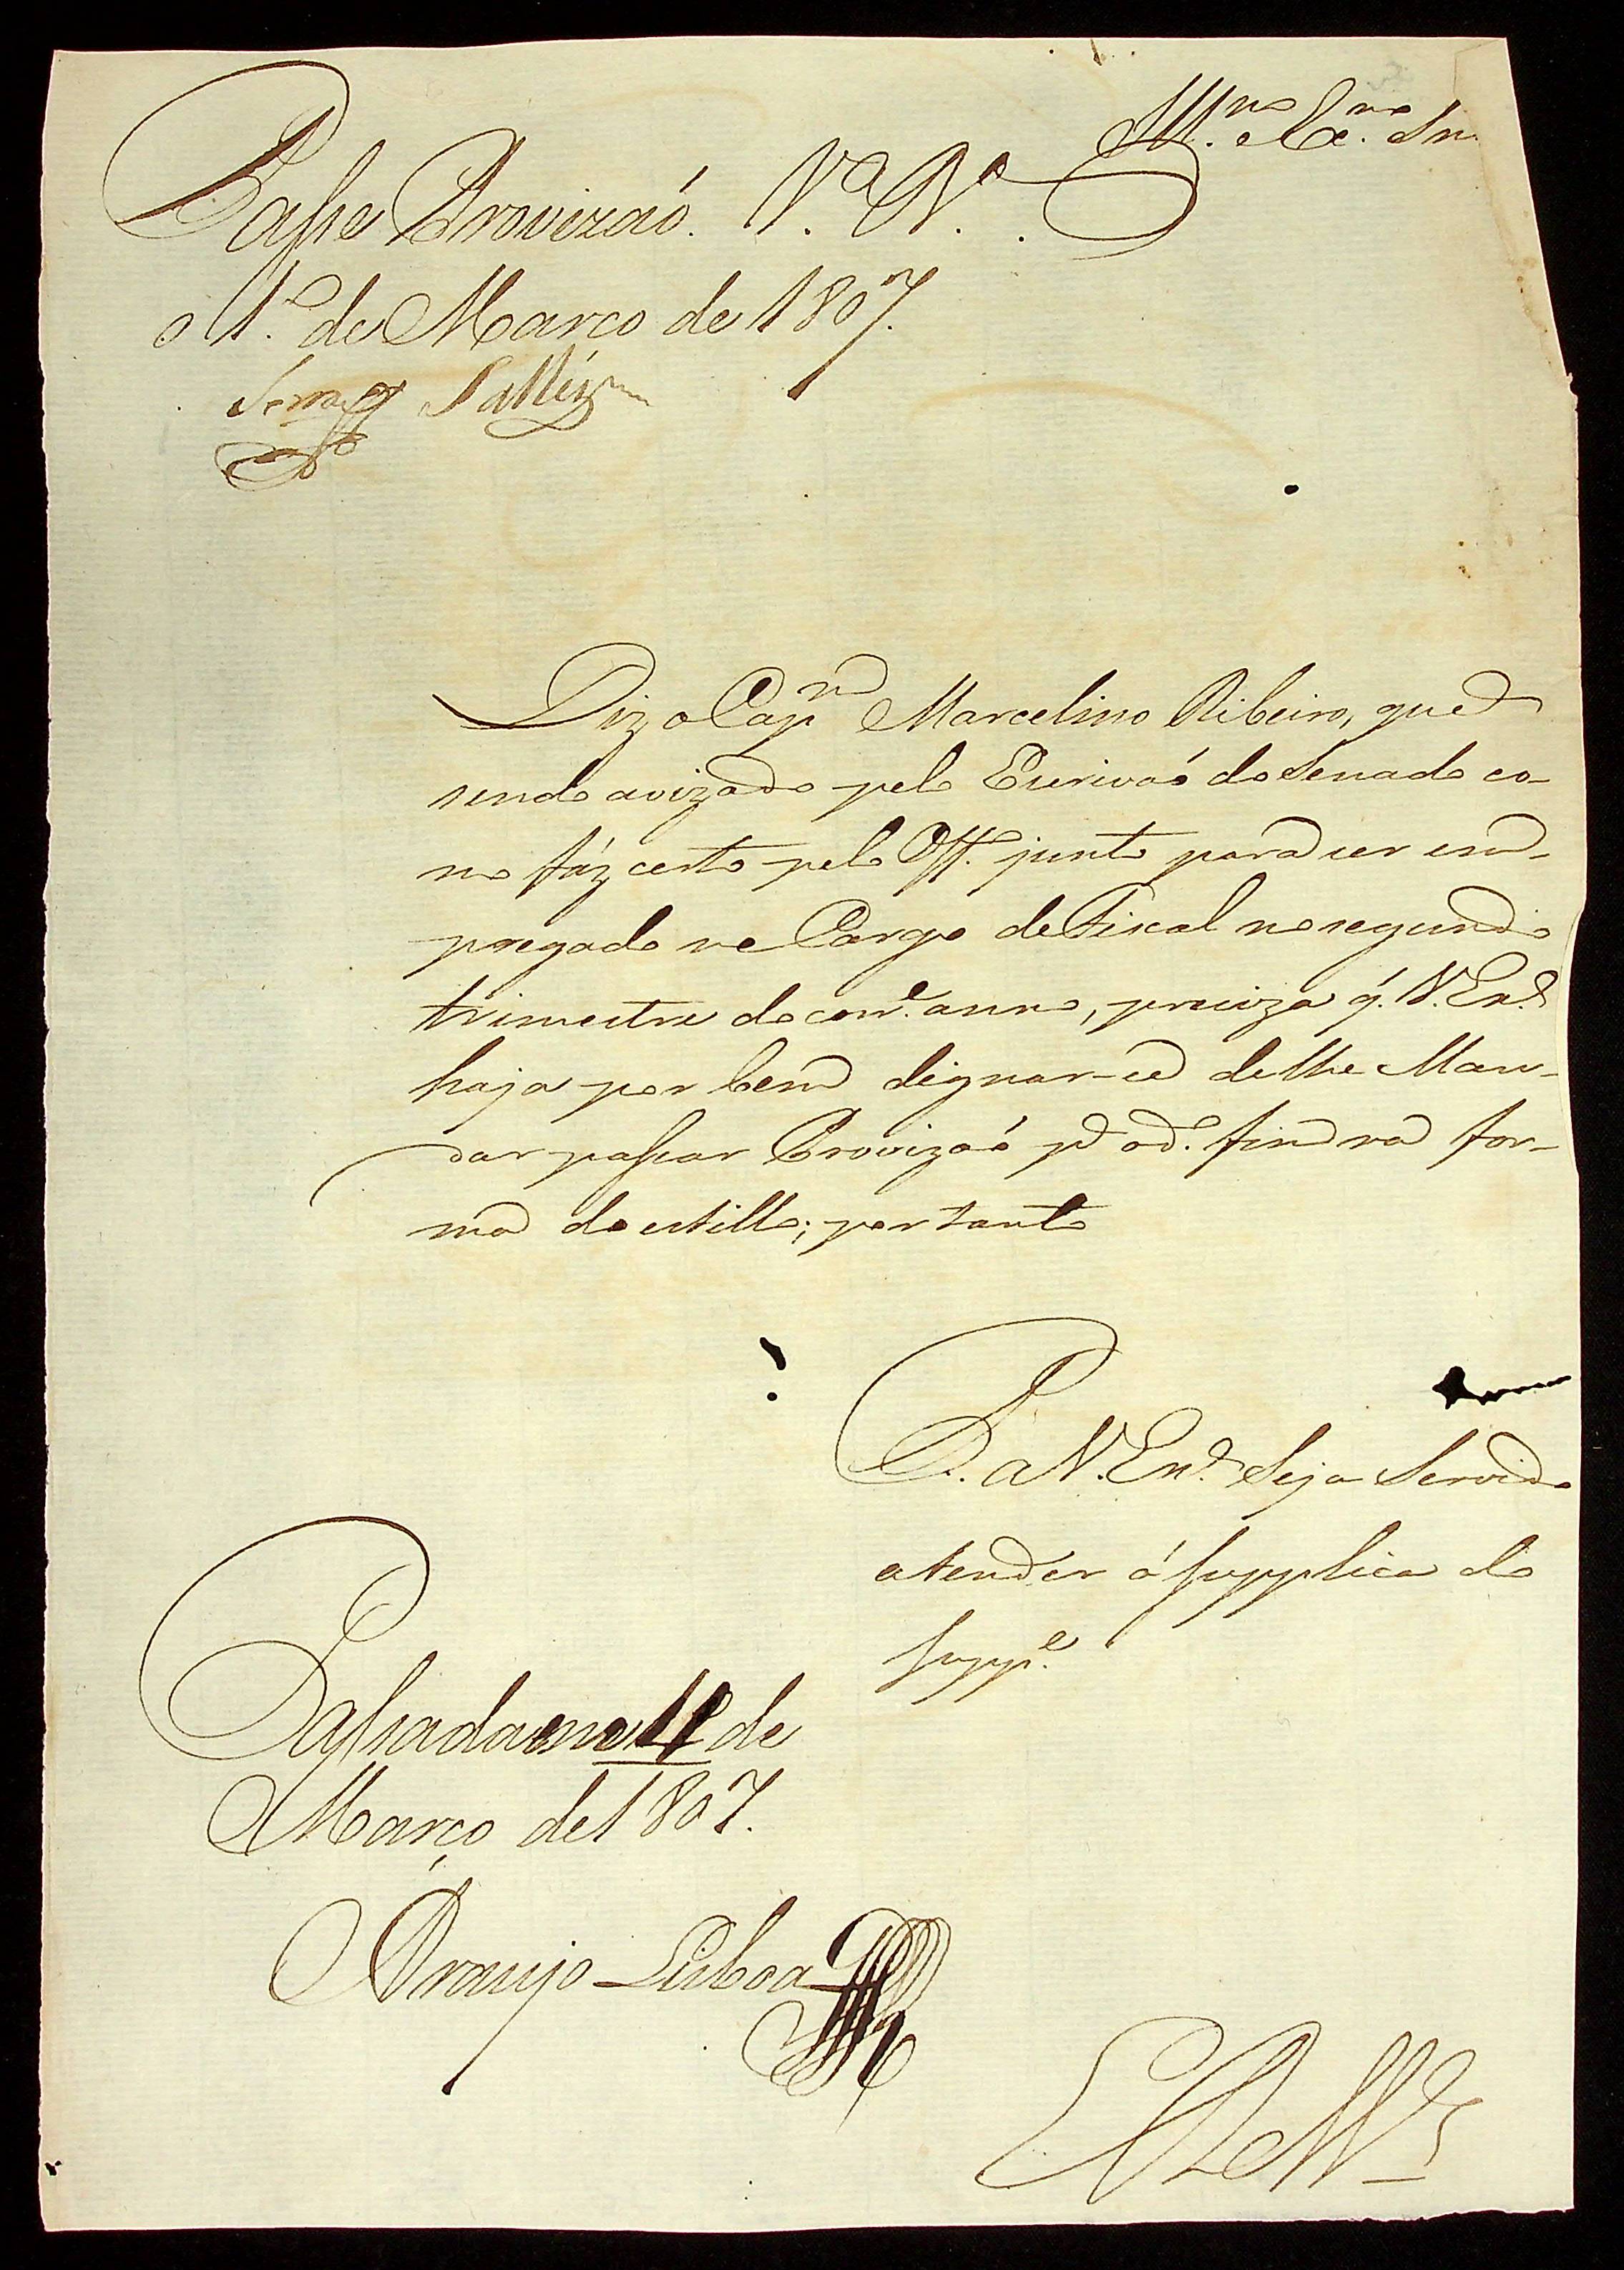 Ill.mo e Ex.mo Sn.
Passe Provizaõ. V.a R.a
o 1.o de Março de 1807.
Diz o Cap.m Marcelino Ribeiro, que
sendo avizado pelo Escrivaõ do Senado co-
mo fáz certo pelo Off.o junto para ser em-
pregado no Cargo de Fiscal no segundo
trimestre do corr.e anno, preciza q. V. Ex.a
haja por bem dignar-se de lhe Man-
dar passar Provizaõ p.a o d.o fim na for-
ma do estillo; portanto
P. a V. Ex.a Seja Servido
atender á supplica do
supp.e
Passada em 11 de
Março de 1807.
Araujo Lisboa
E R M.ce